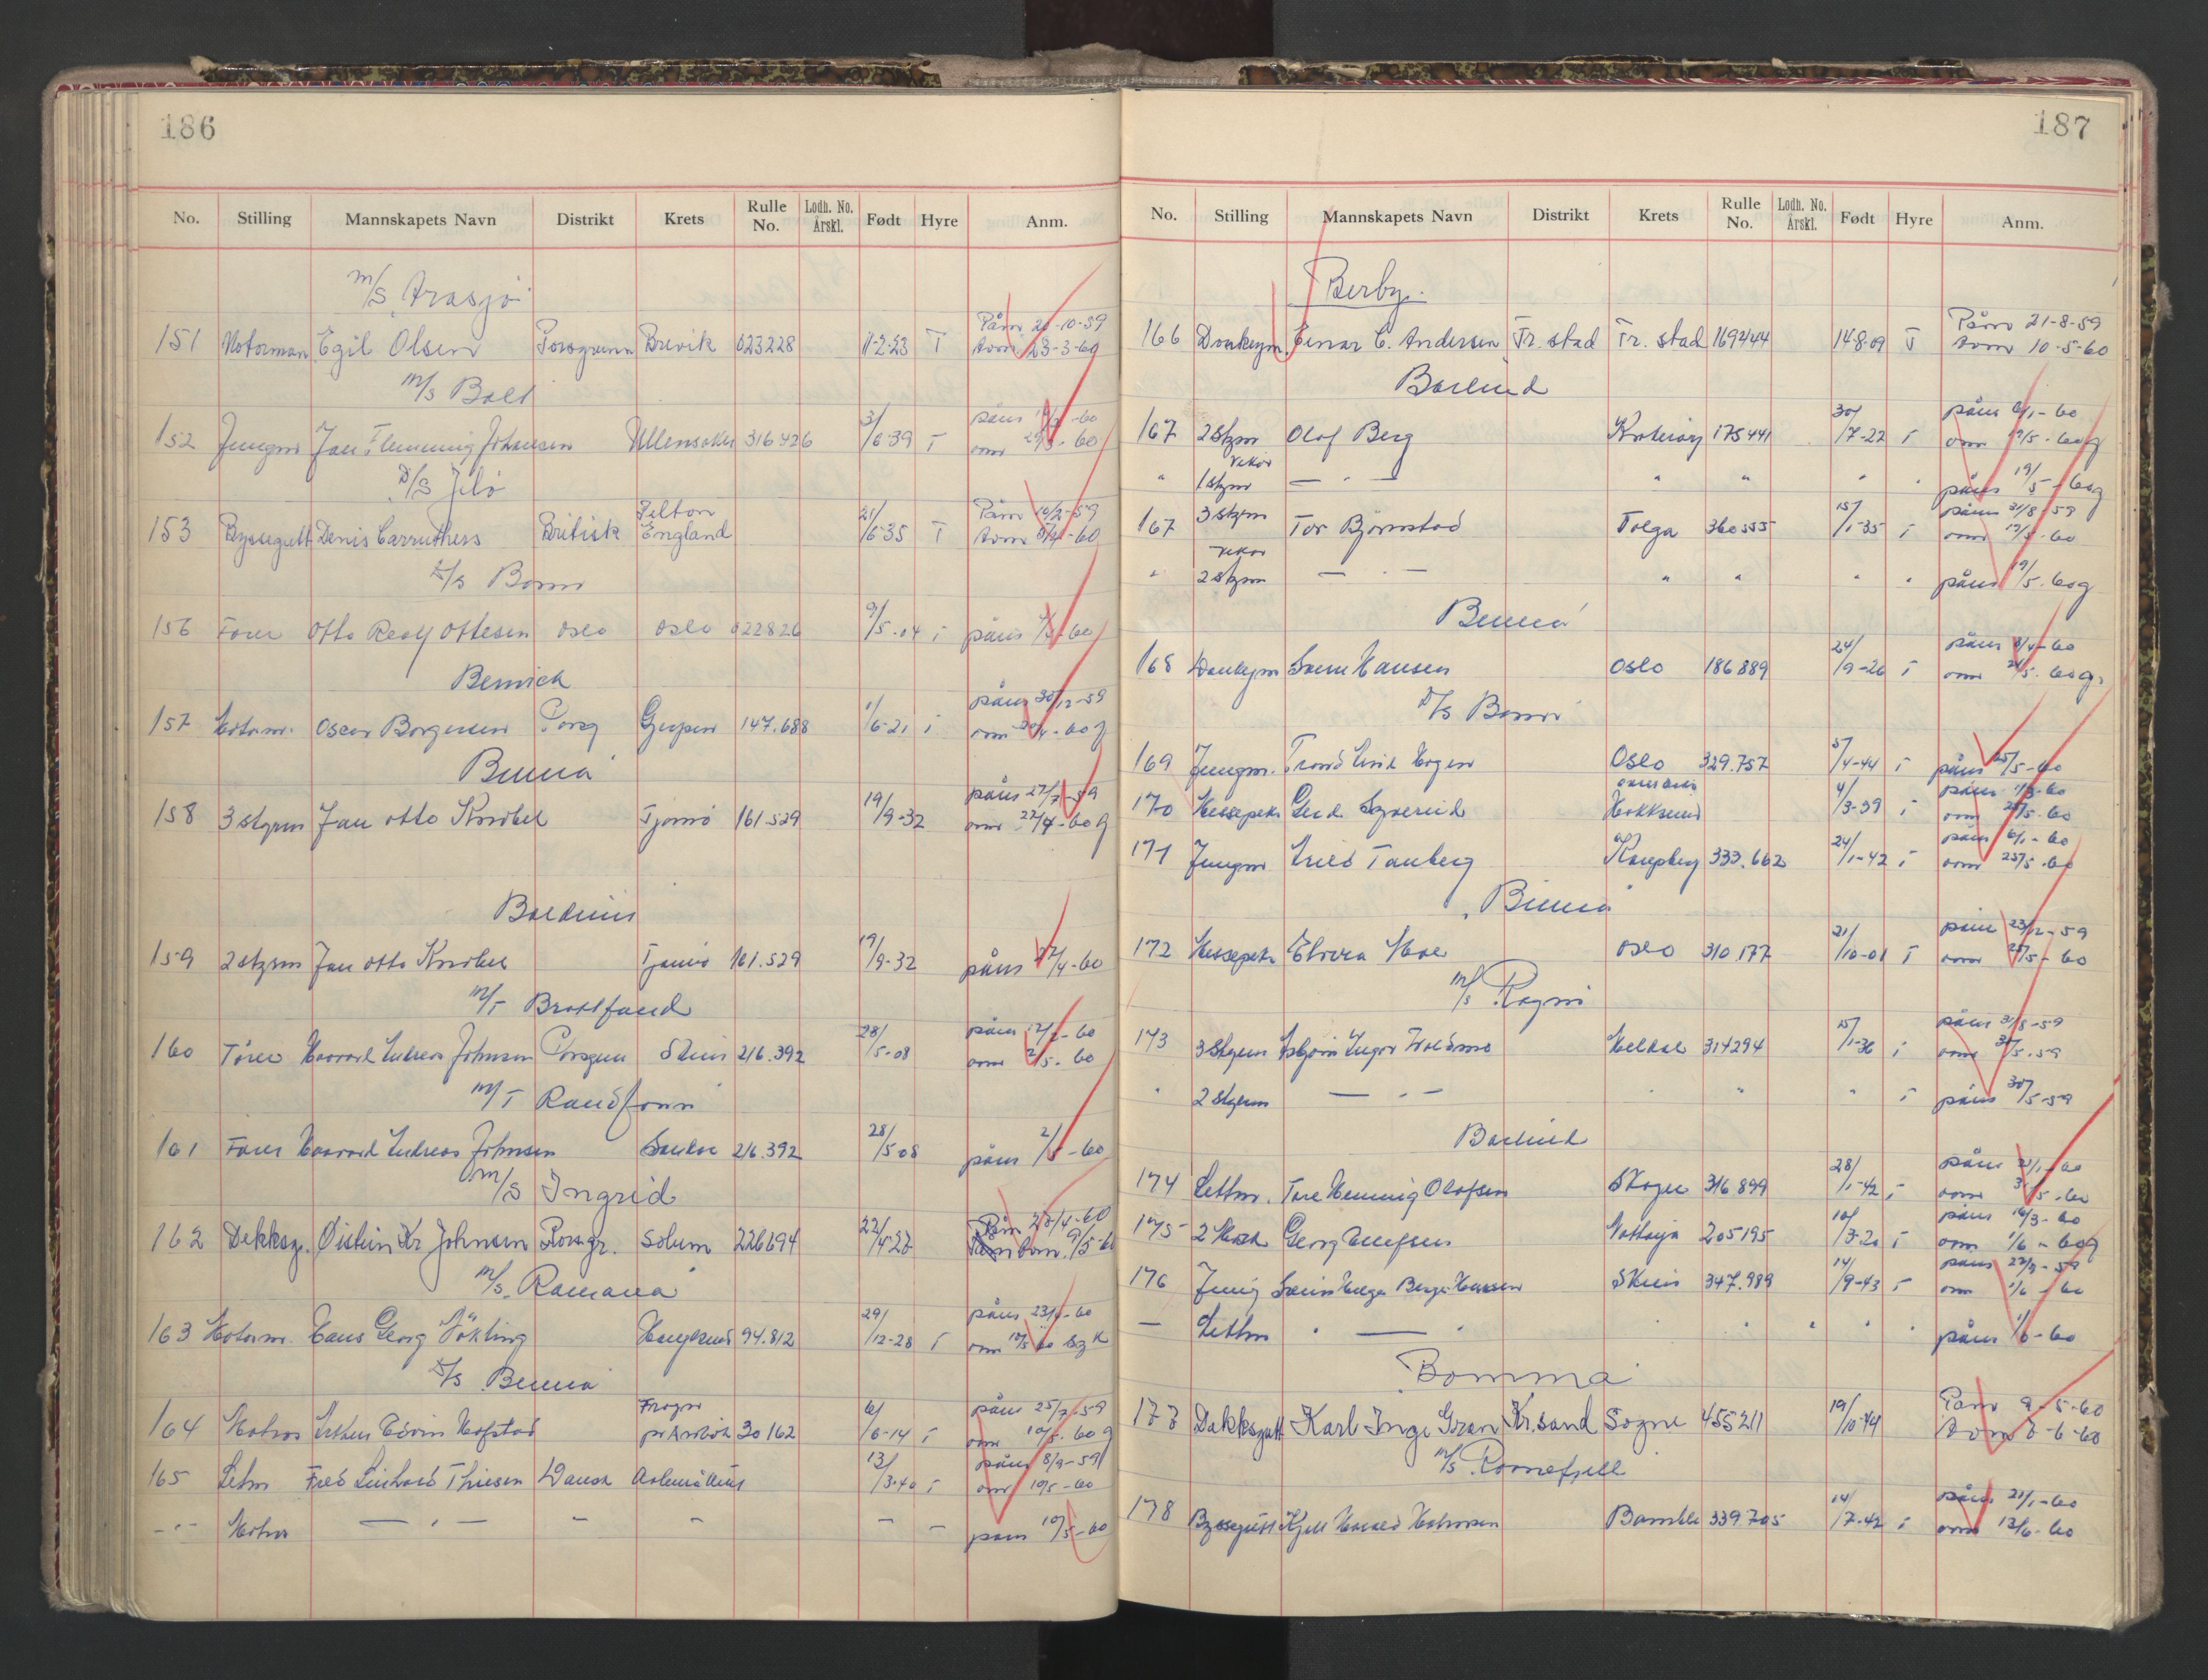 186
No. Stilling Mannskapets Navn Distrikt Krets Rulle No. Lodh. No. Årskl. Født Hyre Anm.
M/S Arasjø
151 Motorman Egil Olsen Porsgrunn Brevik 023228 11-2-23 T Påm 20-10-59
Avm 23-3-60
M/S Balt
152 Jungm Jan Flemming Johansen Ullensaker 316426 3/6-39 T påm -60
avm 29/3-60
D/S Jelø
153 Byssegutt Denis Carruthers British Felton England 21/6-35 T Påm 10/2-59
Avm -60
D/S Borm
156 Fører Otto Rolf Ottesen Oslo Oslo 022826 9/5-04 i påm -60
Bernich
157 Motorm. Oscar Borgersen Porsg Gjerpen 147.688 1/6-21 i påm 30/12-59
avm -60 g
Binna
158 3 styrm Jan Otto Knobel Tjømø 161.529 19/9-32 påm 27/7-59
avm 22/4-60 g
159 2 styrm Jan Otto Knobel Tjømø 161.529 19/9-32 påm 22/4-60
M/T
160 Fører Haavard Andreas Johnsen Porsgrunn Skien 216.392 28/5-08 påm -60
avm 2/5-60
M/T Randfonn
161 Fører Haavard Andreas Johnsen 216.392 28/5-08 påm 2/5-60
M/S Ingrid
162 Dekksg. Øistein Kr Johnsen Porsgr. Solum 226694 22/4-23 Påm 23/4-60
Avm. 9/5-60
M/S. Ramona
163 Motorm. Hans Georg Vökting 94.812 29/12-28 i påm -60
avm -60 syk
D/S Binna
164 Matros Edvin Hofstad Frogn pr Drøbak 30162 6/6-14 i påm 25/7-59
avm 10/5-60 g
165 Letm Fred Leinhard Thiesen Dansk 13/3-40 i påm 8/9-59
avm 10/5-60
- " - Matros — " — - - - - påm 10/5-60
187
No. Stilling Mannskapets Navn Distrikt Krets Rulle No. Lodh. No. Årskl. Født Hyre Anm.
Berby.
166 Donkeym. Einar C. Andersen Fr. stad Fr. stad 169444 14-8-09 T Påm 21-8-59
Avm 10-5-60
Barlind
167 2 styrm Olaf Berg Kråkerøy 175441 30/7-22 i påm 6/1-60
avm 19/5-60 g
" vikar 1 styrm — " — " " " " påm 19/5-60 g
167 3 styrm Tor Bjørnstad Tolga 360555 15/1-35 i påm 31/8-59
avm 19/5-60
" vikar 2 styrm — " — " " " " påm 19/5-60 g
Binna
168 Donkeym Svein Hansen Oslo 186889 24/9-26 i påm 8/4-60
avm 20/5-60 g.
D/S Borm
169 Jungm. Trond Hagen Oslo 329.757 5/4-44 i påm 25/5-60
170 Messepike Gerd Syvereid Hokksund 4/3-39 i påm -60
avm 25/5-60
171 Jungm Tanberg Kongsberg 333.662 24/1-42 i påm 6/1-60
avm 25/5-60
"Binna"
172 Messepike Elvira Moe Oslo 310.177 21/10-01 i påm 23/12-59
avm 25/5-60
M/S Ragni
173 3 styrm Asbjørn Meldal 314294 15/1-36 i påm 31/8-59
avm 30/5-59
" 2 styrm — " — " " " i påm 30/5-59
Barlind
174 Lettm. Tore Henning Olafsen Skoger 316899 28/1-42 i påm -60
avm 31/5-60
175 2 Mask Georg Nøtterøy 205195 10/3-20 i påm 16/3-60
avm 1/6-60 g
176 Jung Svein Helge Berge Hansen Skien 347.989 14/9-43 i påm 22/9-59
avm 1/6-60
— Lettm " — " " " " " påm 1/6-60
Bomma
177 Dekksgutt Karl Inge Gran Kr.sand Søgne 455211 19/10-44 Påm 9-5-60
Avm 8-6-60
M/S Ramefjell
178 Byssegutt Kjell Harald Halvorsen Bamble 339.705 14/7-42 i påm 21/1-60
avm 13/6-60